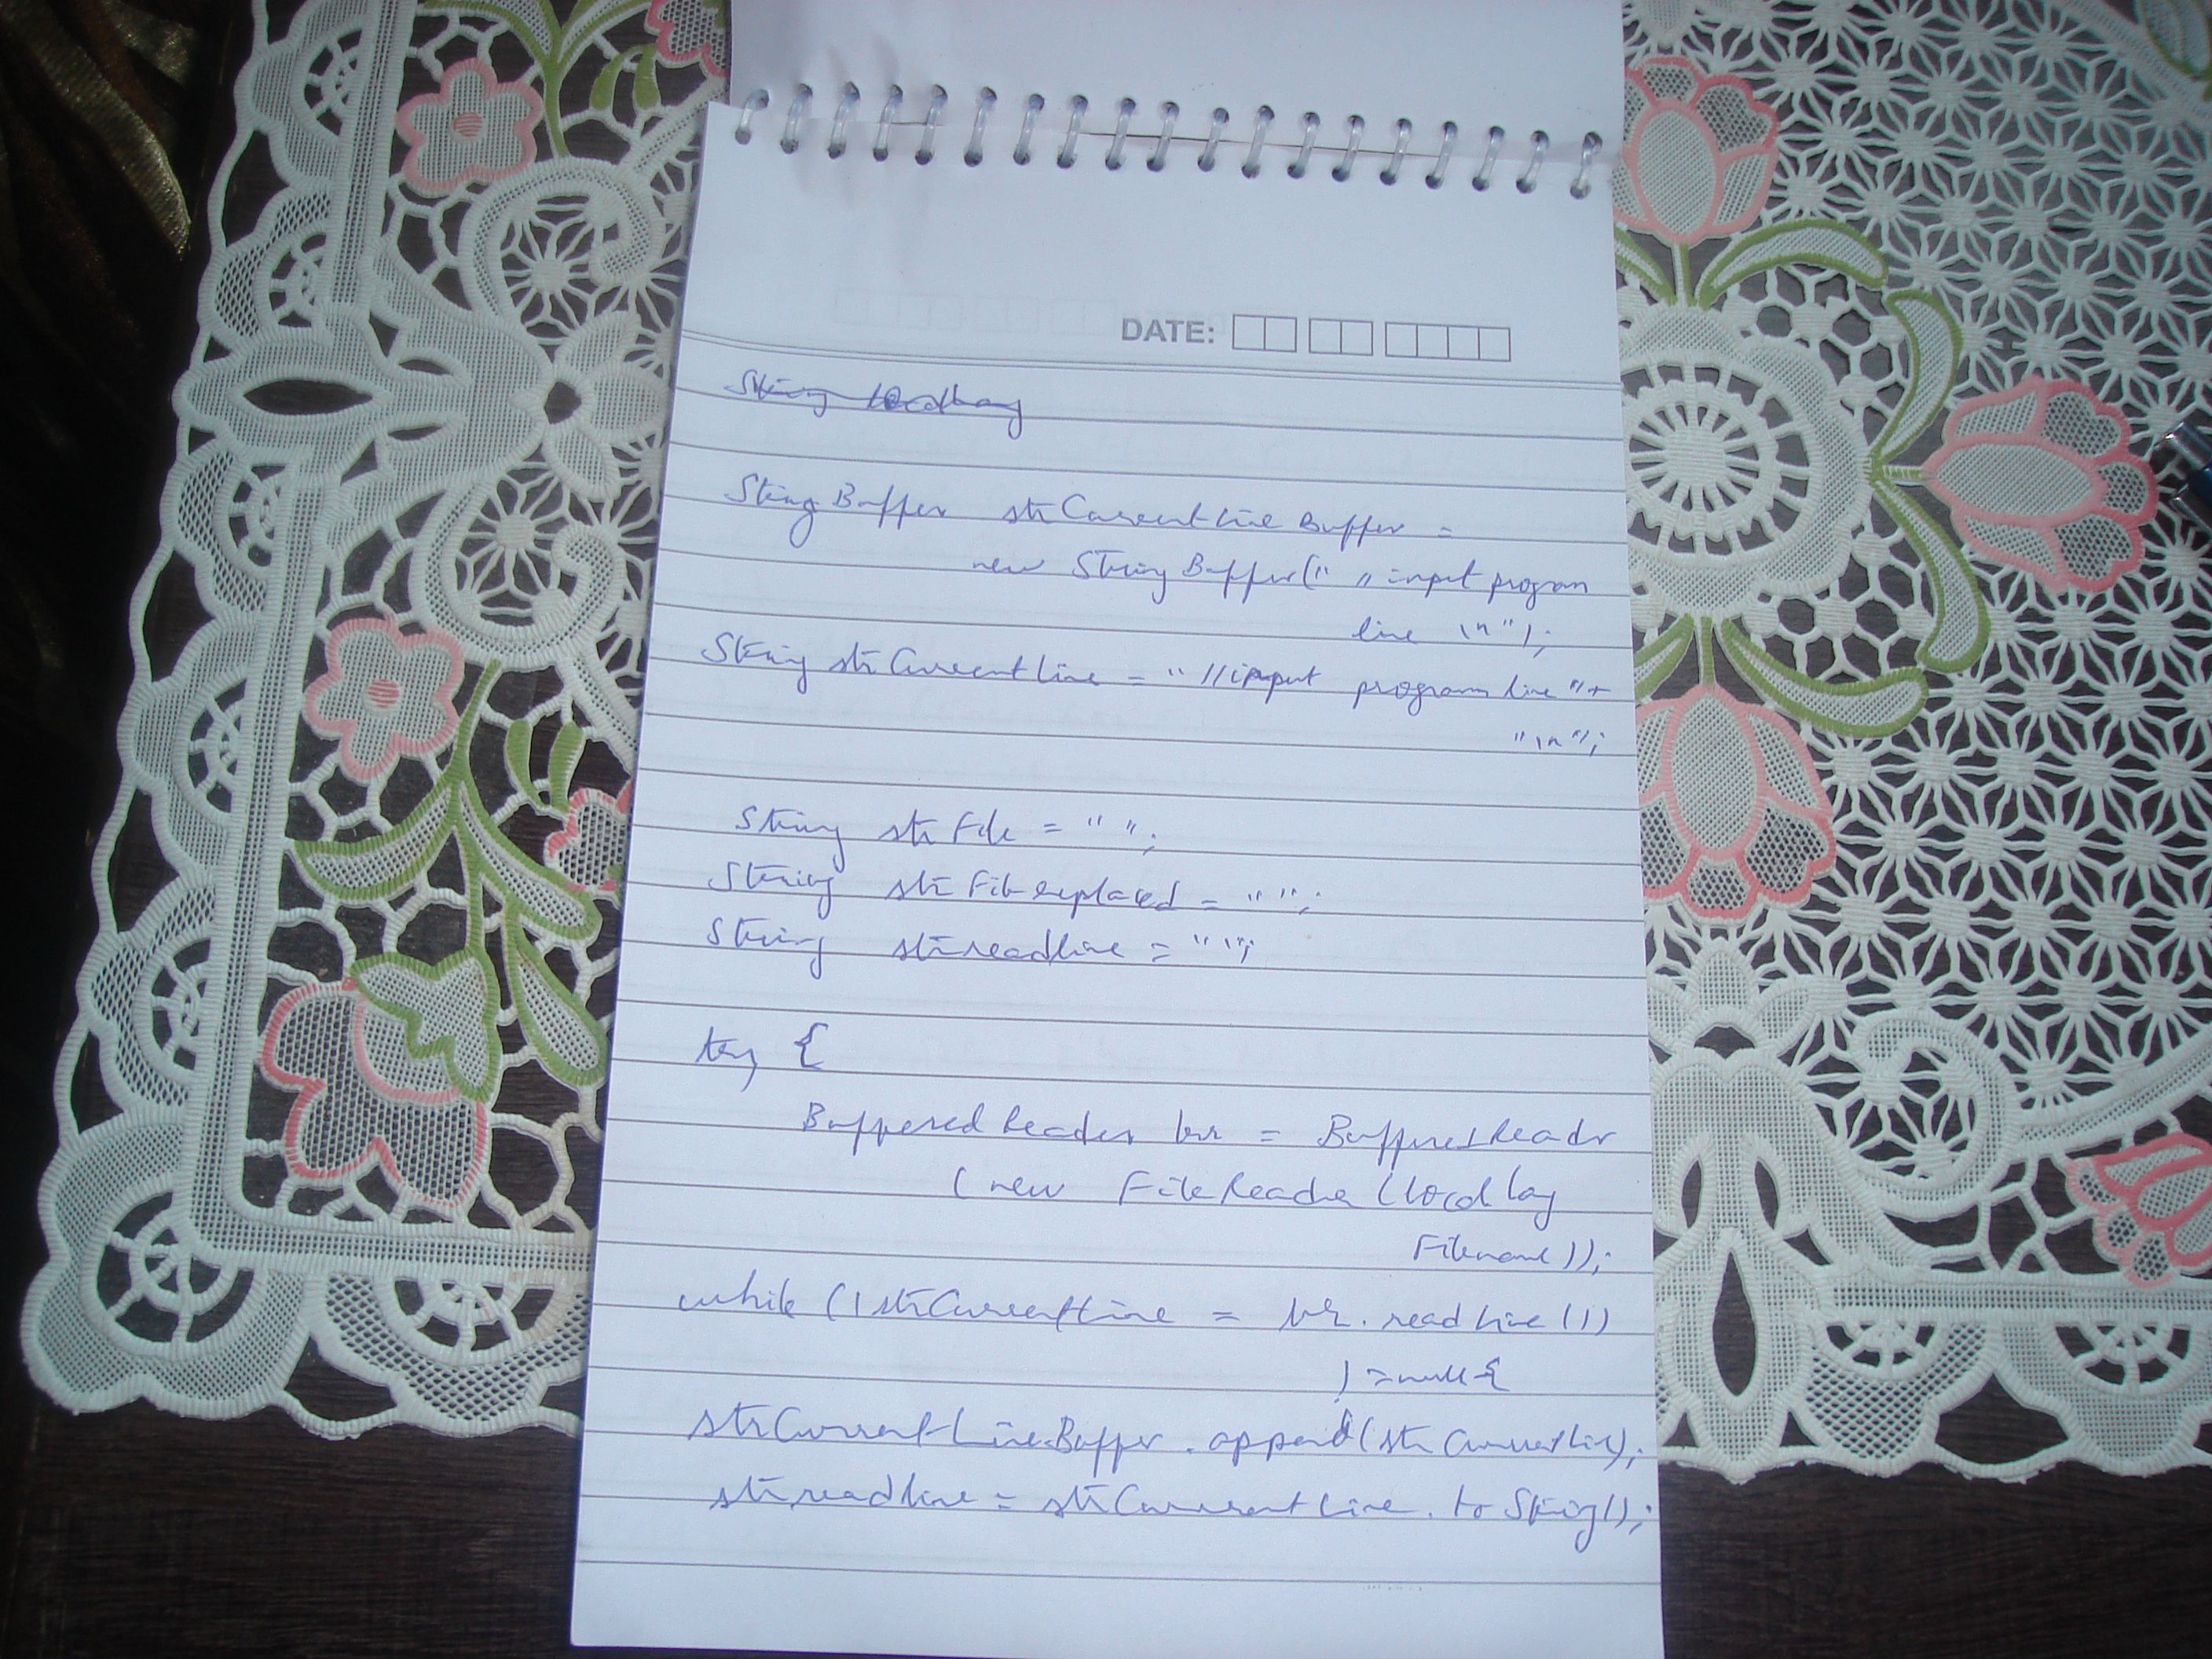 DATE:
String
StringBuffer strCurrentLineBuffer =
new StringBuffer(" // input program
line \n");
String strCurrentLine = "//input program line "+
"\n";
String strFile = " ";
String strFilereplaced = " ";
String strreadline = " ";
try {
BufferedReader br = BufferedReader
(new FileReader (local lay
Filename));
while ((strCurrentLine = br.readLine())
) = null {
strCurrentLineBuffer.append(strCurrentLine);
strreadline = strCurrentLine.toString();